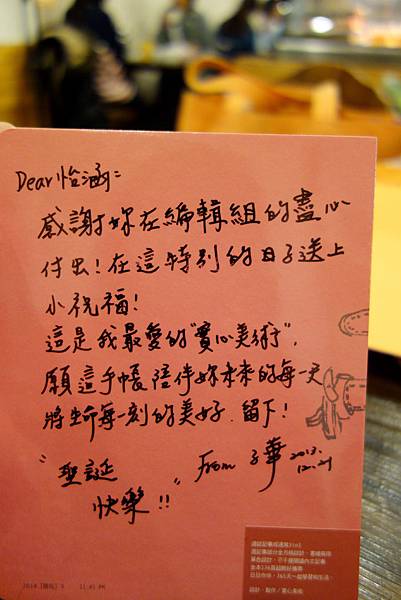 Dear 怡涵:
感謝妳在編輯組的盡心
付出!在這特別的日子送上
小祝福!
這是我最愛的"實心美術",
願這手帳陪伴妳未來的每一天
將生命每一刻的美好.留下!
"聖誕
快樂!!"
From 子華
2013.
12.21